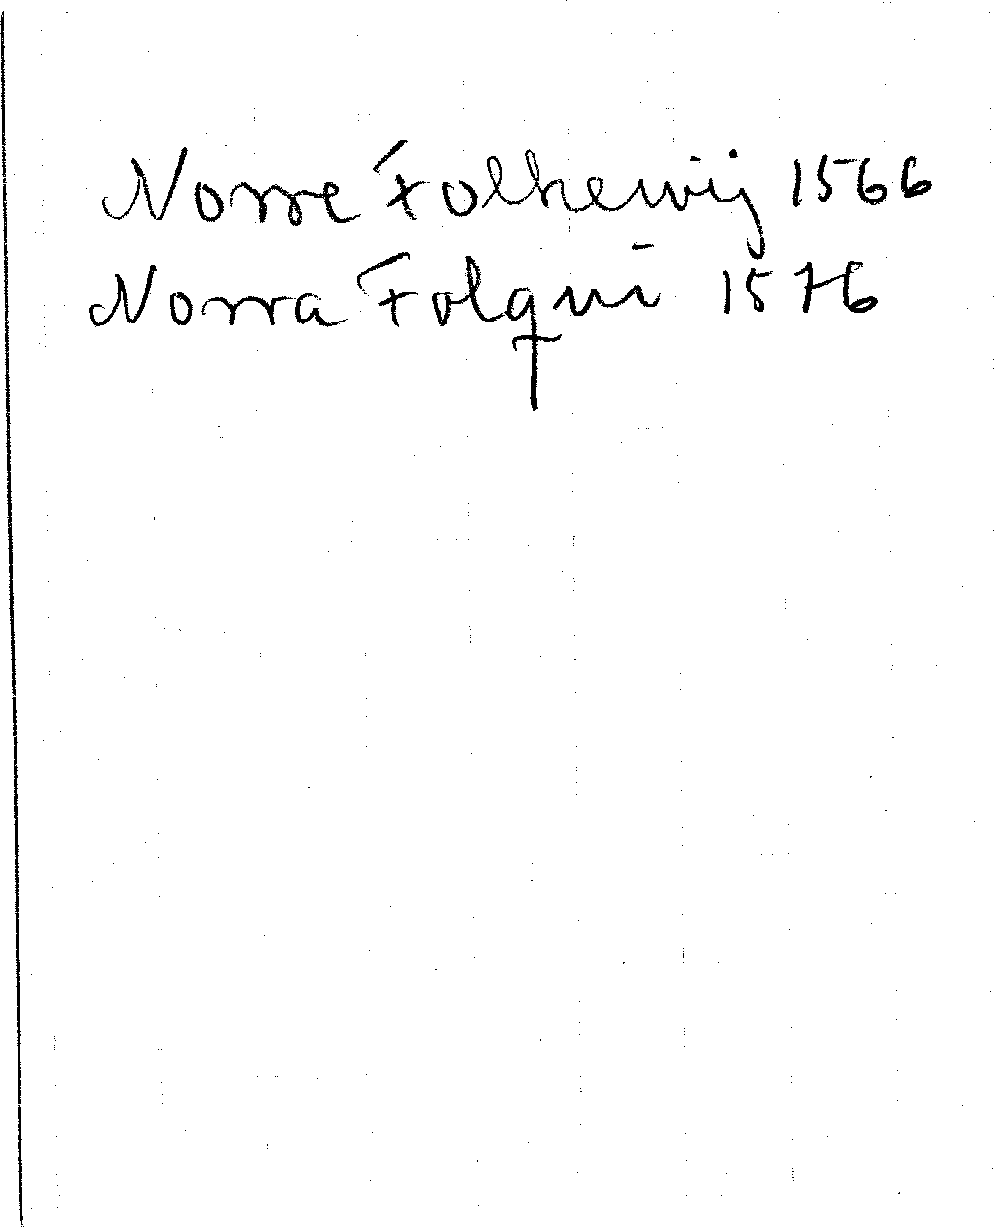 Norre Folkewij 1566
Norra Folqui 1576